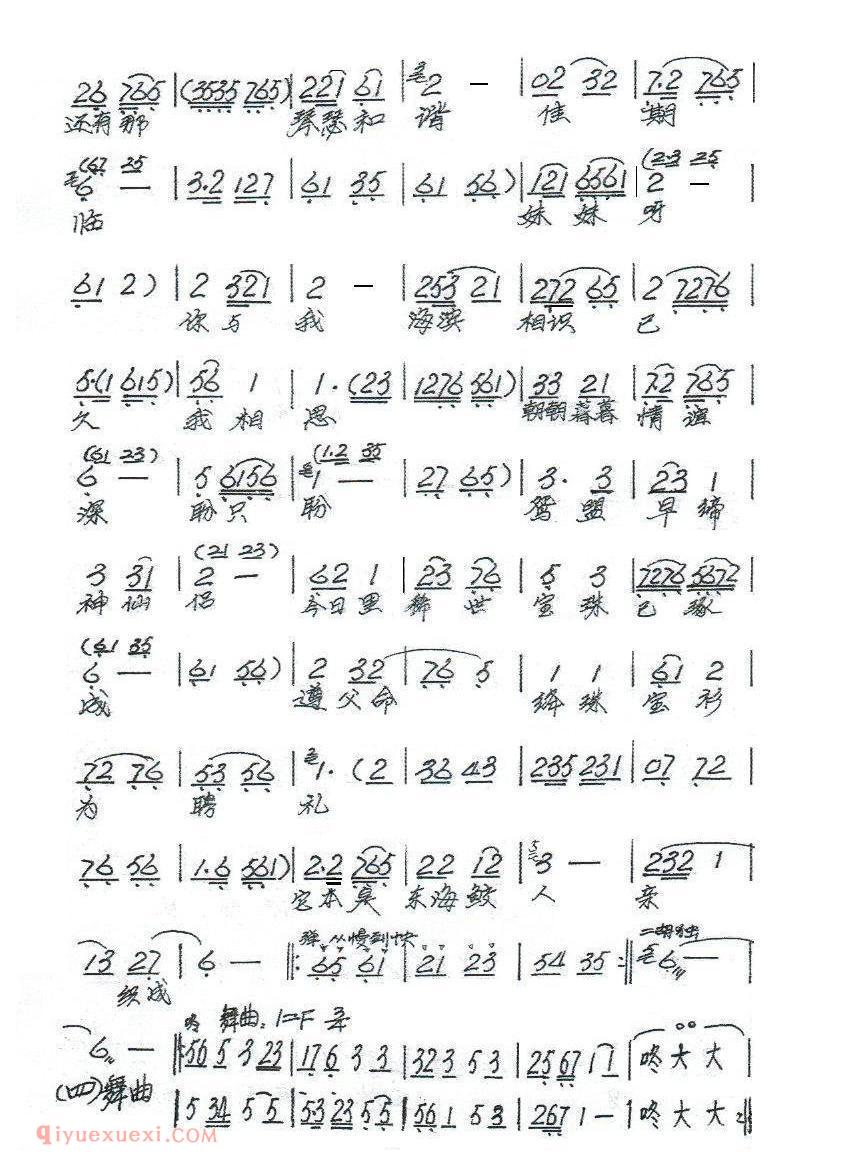 26 765 | (3535 765) | 221 61 | 2 — | 02 32 | 7.2 765 |
还有那 琴瑟和 谐 佳 期
(67 35
6 — | 3.2 127 | 61 35 | 61 56) | 121 6561 | 2 — |
(2.3 25
临 妹妹 呀
61 2) | 2 321 | 2 — | 253 21 | 272 65 | 2 7276 |
你与 我 海滨 相识 已
5.(1 615) | 56 1 | 1.(23 | 1276 561) | 33 21 | 7.2 765 |
久 我相 思 朝朝暮暮 情谊
(61 23) (1.2 35
6 — | 5 6156 | 1 — | 27 65) | 3. 3 | 23 1 |
深 盼只 盼 鸳盟 早缔
(21 23)
3 31 | 2 — | 62 1 | 23 76 | 5 3 | 7276 5672 |
神仙 侣 今日里 稀世 宝珠 已琢
(61 35
6 — | 61 56) | 2 32 | 76 5 | 1 1 | 61 2 |
成 遵父命 绛珠 宝衫
72 76 | 53 56 | 1.(2 | 36 43 | 235 231 | 07 72 |
为 聘 礼
76 56 | 1.6 561) | 2.2 765 | 22 12 | 3 — | 232 1 |
它本是 东海鲛 人 亲
弹、从慢到快 二胡独
13 27 | 6 — |: 65 61 | 21 23 | 54 35 :| 6 — |
织成
舞曲:1=F
6 — | 56 5 3 23 | 17 6 3 3 | 323 5 3 | 25 67 1 1 | 咚 大 大 |
(四)舞曲 | 5 34 5 5 | 53 23 5 5 | 56 1 5 3 | 267 1 — | 咚 大 大 :|
qiyuexuexi.com